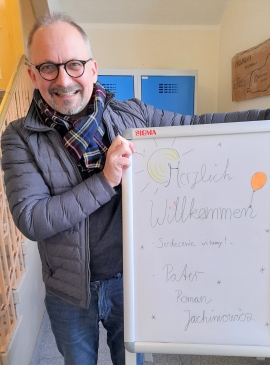 SIGMA
Herzlich
Willkommen
Serdecznie witamy!
Pater
Roman